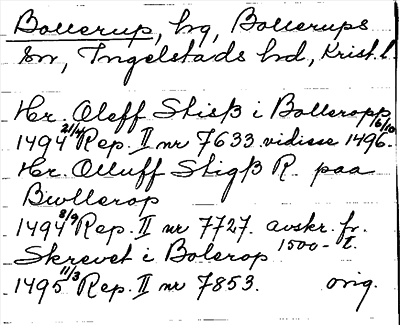 Bollerup, hg, Bollerups
sn, Ingelstads hd, Krist. l.
Hr. Oleff Stisß i Bolleropp
1494 21/4 Rep. II nr 7633 vidisse 1496 6/10.
Hr. Olluff Stigß R. paa
Bwllerop
1494 8/9 Rep. II nr 7727. avskr. fr.
1500-t.
Skrevet i Bolerop
1495 11/3 Rep. II nr 7853. orig.